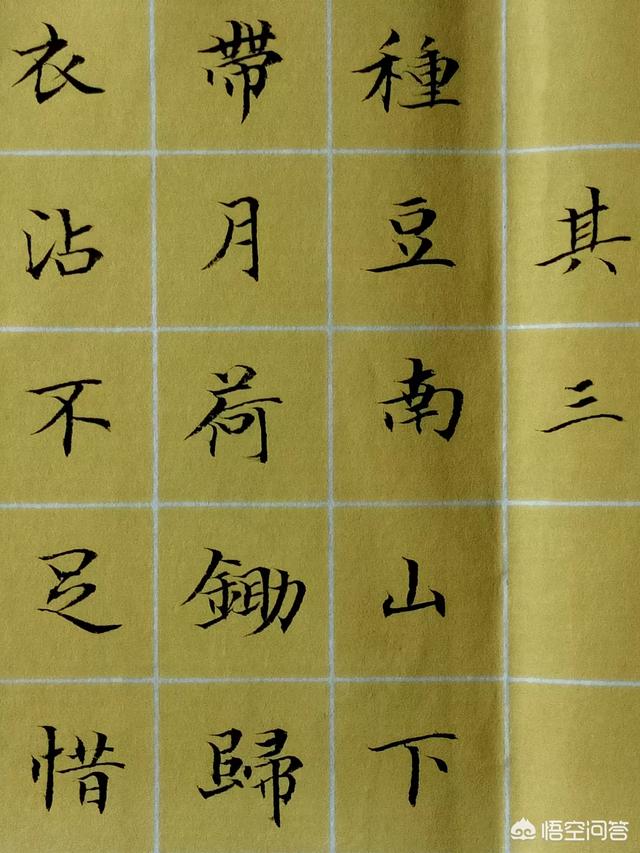 其三
種豆南山下
帶月荷鋤歸
衣沾不足惜
悟空问答